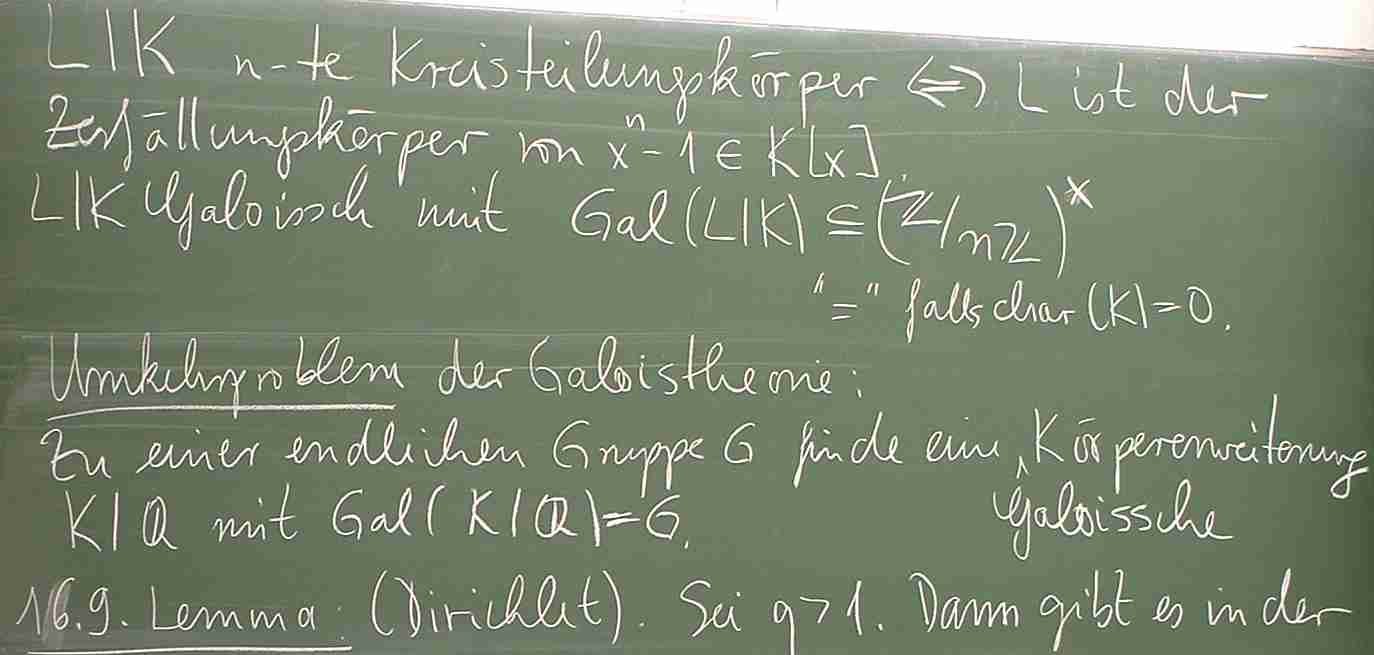 L|K n-te Kreisteilungskörper ⇔ L ist der
Zerfällungskörper von xⁿ-1 ∈ K[x].
L|K Galoissch mit Gal(L|K) ⊆ (ℤ/nℤ)^x
"=" falls char(K)=0.
Umkehrproblem der Galoistheorie:
Zu einer endlichen Gruppe G finde eine ∧ Körpererweiterung
K|ℚ mit Gal(K|ℚ)=G. Galoissche
16.9. Lemma: (Dirichlet). Sei q>1. Dann gibt es in der